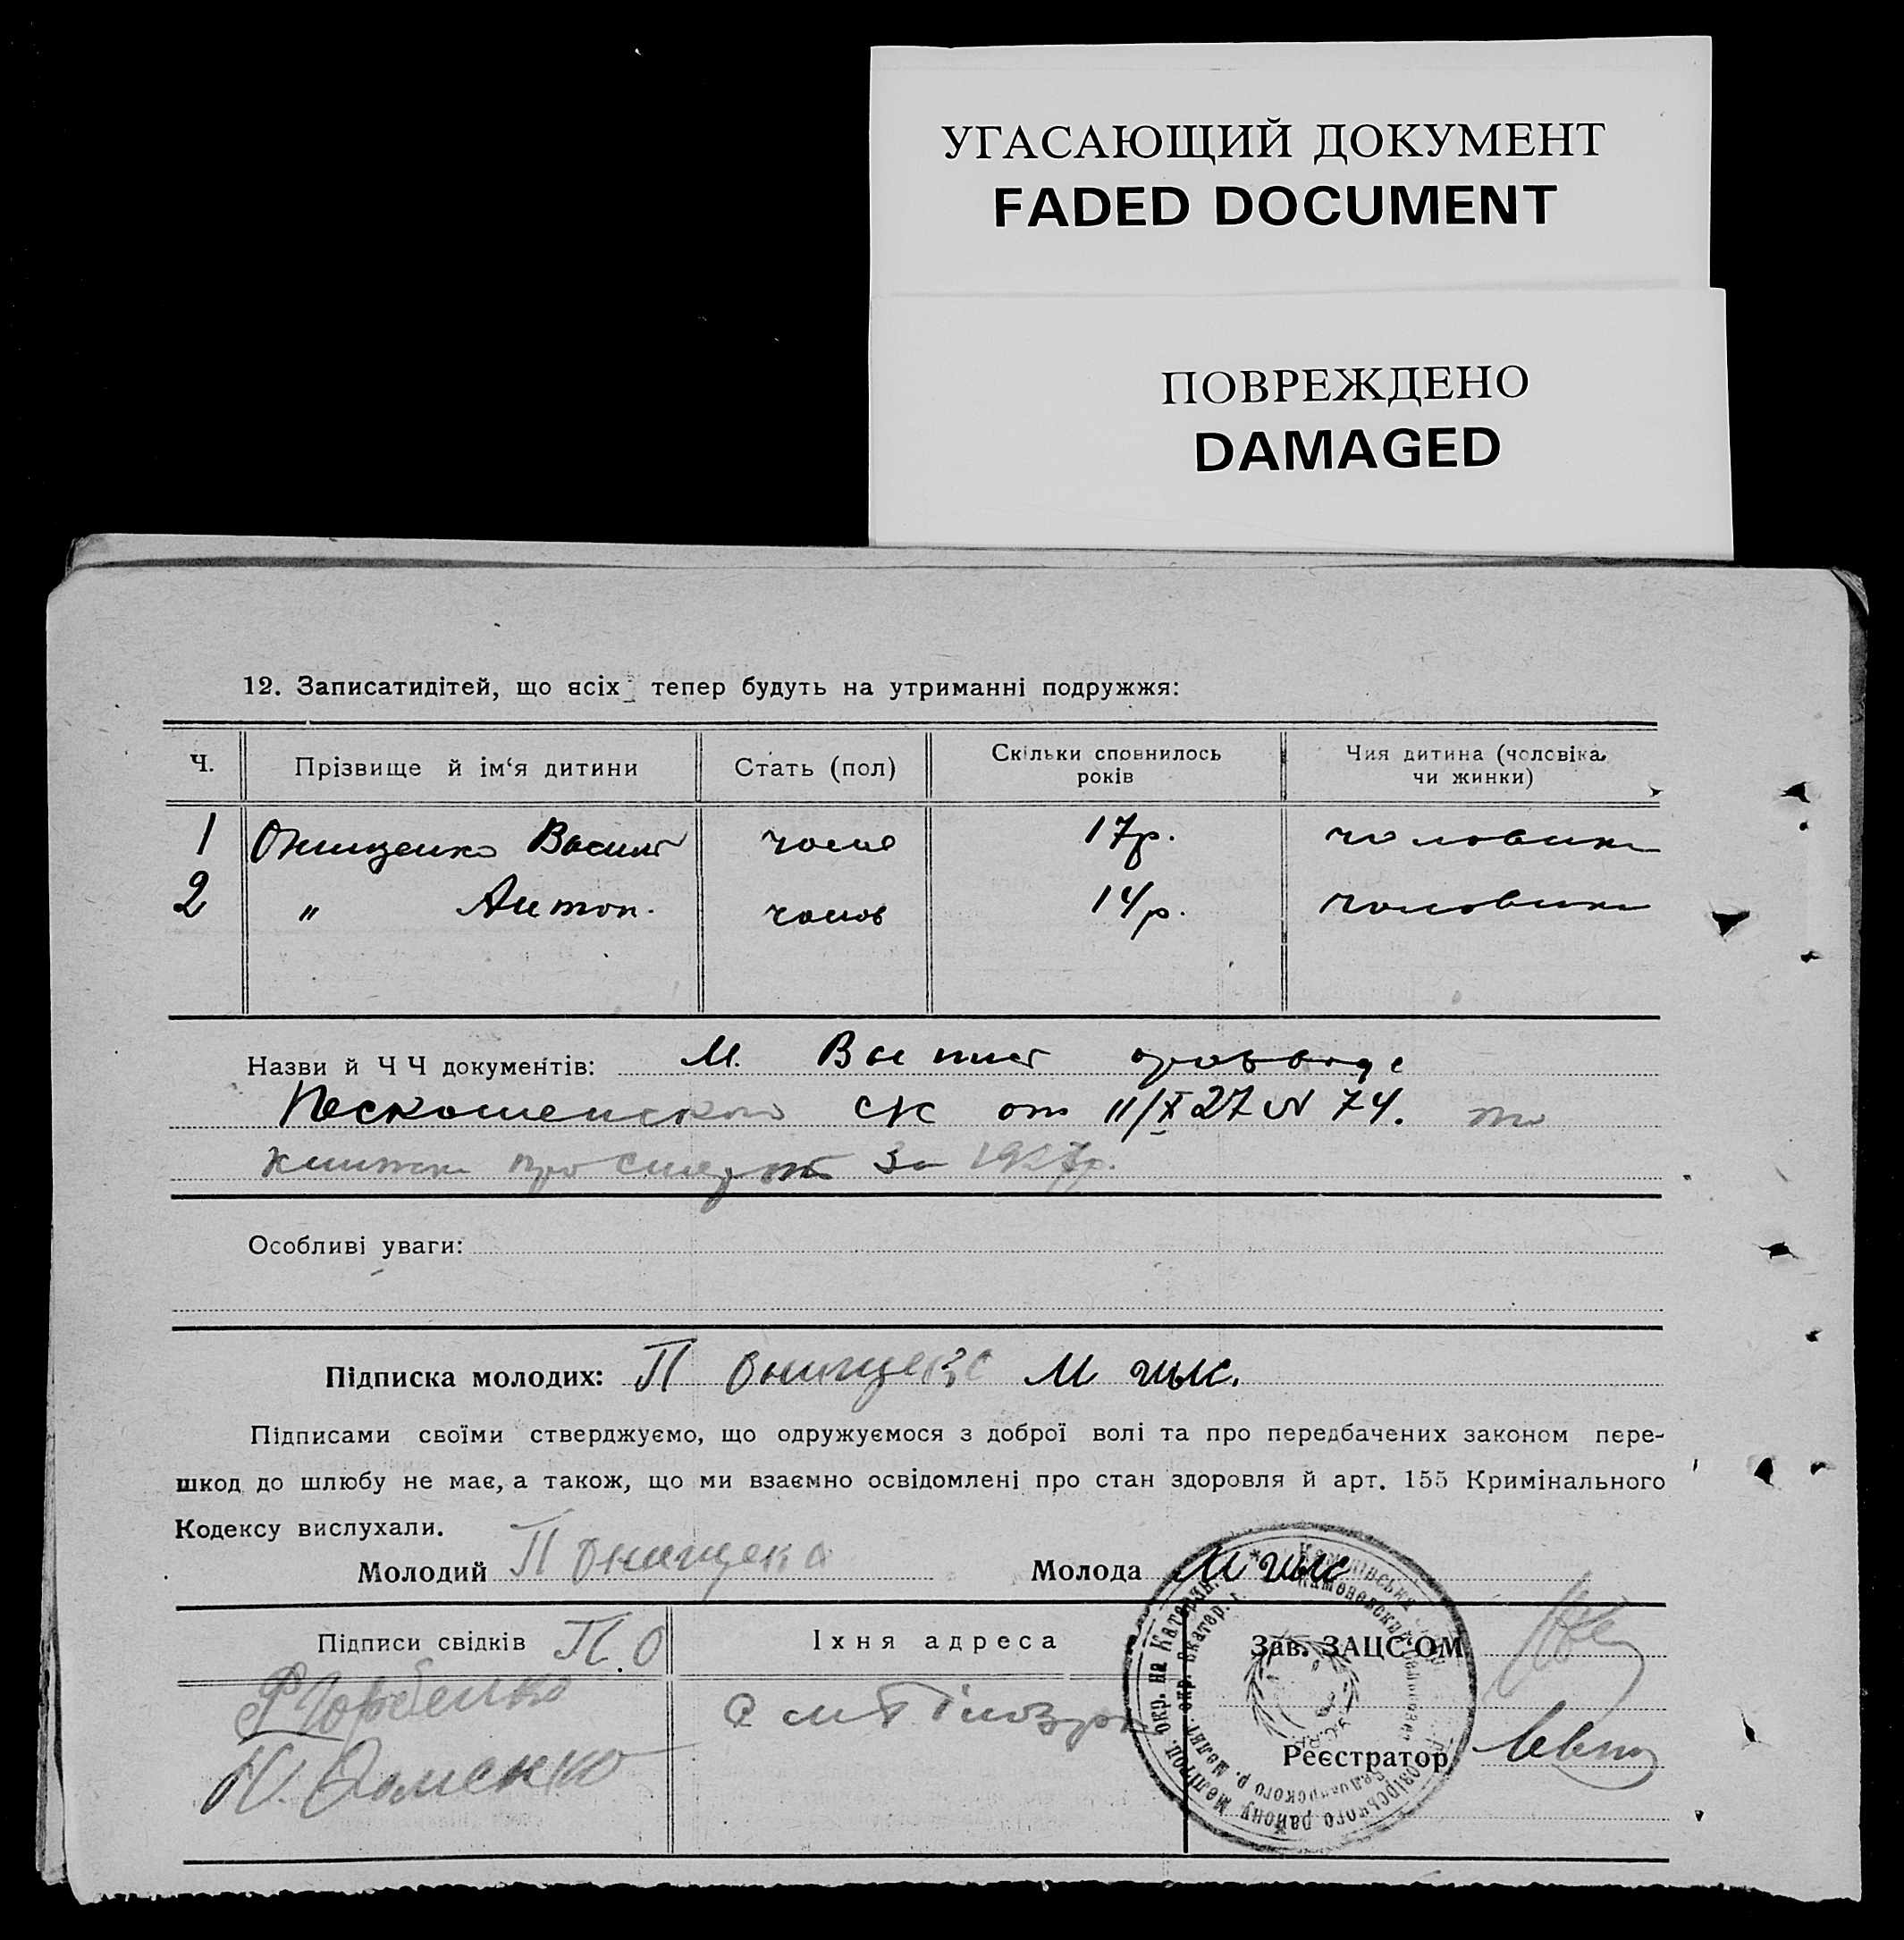 УГАСАЮЩИЙ ДОКУМЕНТ
FADED DOCUMENT
ПОВРЕЖДЕНО
DAMAGED
12. Записатидітей, що всіх тепер будуть на утриманні подружжя:
Ч. Прізвище й ім'я дитини Стать (пол) Скільки сповнилось років Чия дитина (чоловіка, чи жинки)
1 Онищенко Василь чолов 17р. чоловика
2 " Антон. чолов 14р. чоловика
Назви й Ч Ч документів: М.
Пескошенского СК от 11/X 27 N 74. та
книжка про смерть за 1927р.
Особливі уваги:
Підписка молодих: П Онищенко М
Підписами своїми стверджуємо, що одружуємося з доброї волі та про передбачених законом пере-
шкод до шлюбу не має, а також, що ми взаємно освідомлені про стан здоровля й арт. 155 Кримінального
Кодексу вислухали.
Молодий П Онищенко Молода М
Підписи свідків П.О Іхня адреса Зав. ЗАЦС'ОМ
Ф Горбенко
Реєстратор